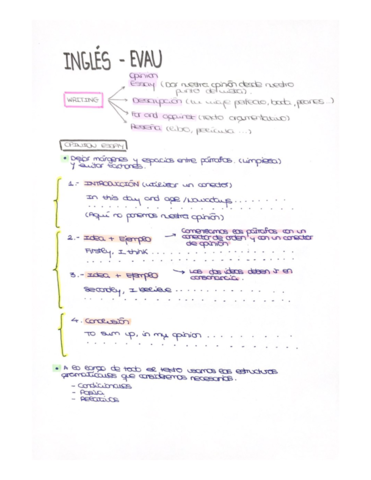 INGLÉS - EVAU
WRITING
Opinion
Essay (Dar nuestra opinión desde nuestro
punto de vista).
Descripción (tu viaje perfecto, boda, planes...)
For and against (texto argumentativo)
Reseña (libro, película ...)
OPINION ESSAY
Dejar márgenes y espacios entre párrafos. (Limpieza)
y evitar tachones.
1.- INTRODUCCIÓN (utilizar un conector)
In this day and age / Nowadays...
(Aquí no ponemos nuestra opinión)
2.- Idea + Ejemplo → Comenzamos los párrafos con un
conector de orden y con un conector
de opinión.
Firstly, I think
3.- Idea + Ejemplo → Las dos ideas deben ir en
consonancia.
Secondly, I believe
4. Conclusión
To sum up, in my opinion
A lo largo de todo el texto usamos las estructuras
gramaticales que consideremos necesarias.
- Condicionales
- Pasiva
- Relativos